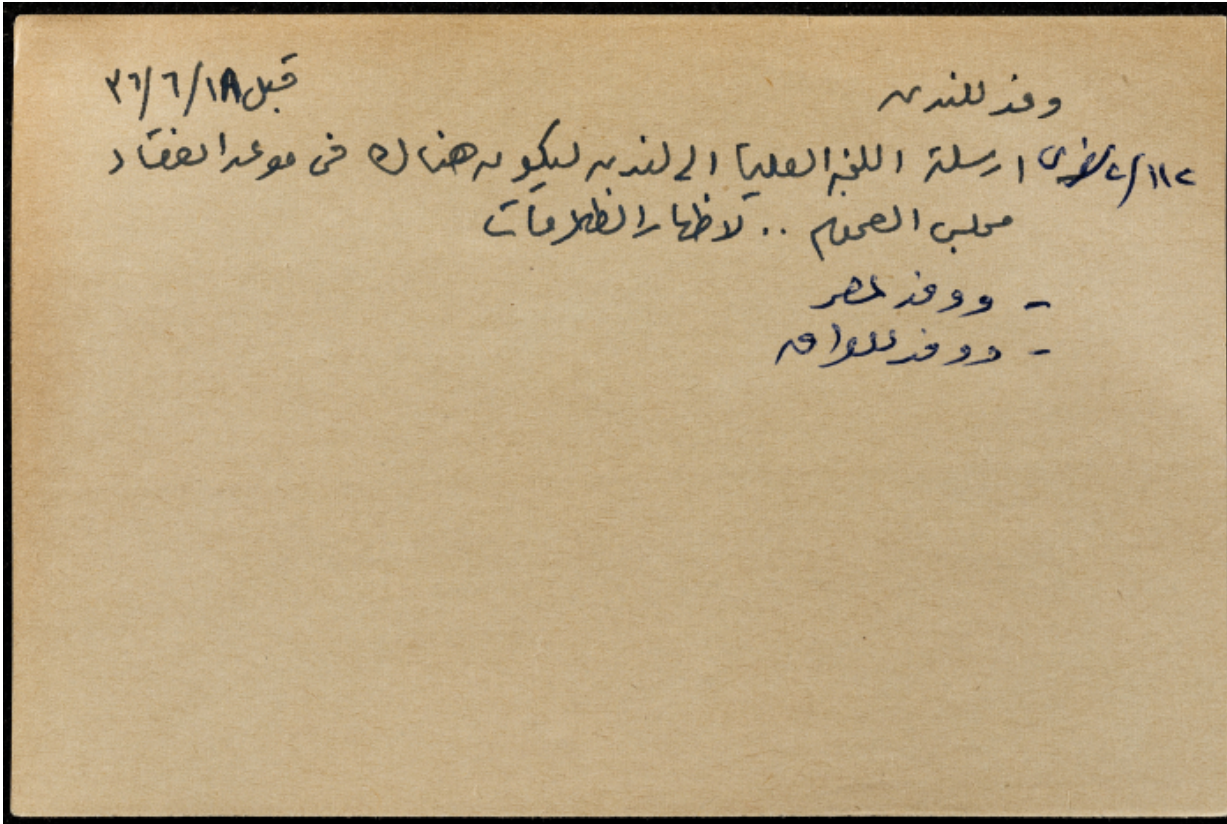 وفد للندن قبل ٣٦/٦/١٨
١١٢/٢ ارسلته اللجنة العليا الى لندن ليكون هناك في موعد انعقاد
مجلس العموم .. لاظهار الظلامات
- ووفد لمصر
- ووفد للعراق